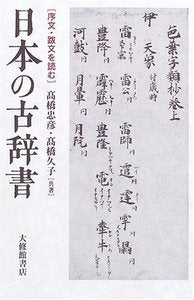 [序文・跋文を読む]
日本の古辞書
高橋忠彦・高橋久子[共著]
大修館書店
色葉字類抄 巻上
伊
天象 付歳時
雷 雷公 雷師
豊隆 電 牽牛
河鼓 月暈 月院